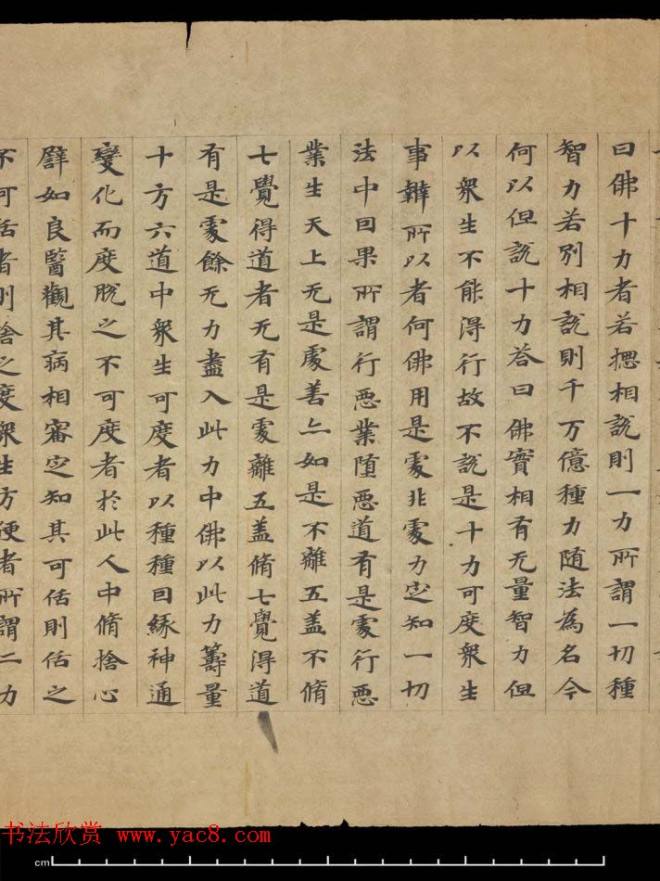 曰佛十力者若揔相說則一力所謂一切種
智力若別相說則千万億種力随法為名今
何以但說十力荅曰佛實相有无量智力但
以衆生不能得行故不說是十力可度衆生
事辦所以者何佛用是處非處力定知一切
法中囙果所謂行悪業堕悪道有是處行悪
業生天上无是處善亦如是不離五盖不脩
七覺得道者无有是處離五盖脩七覺得道
有是處餘九力盡入此力中佛以此力籌量
十方六道中衆生可度者以種種囙緣神通
變化而度脫之不可度者於此人中脩捨心
譬如良醫觀其病相審定知其可活則活之
不可活者則捨之度衆生方便者所謂二力
书法欣赏 www.yac8.com
cm